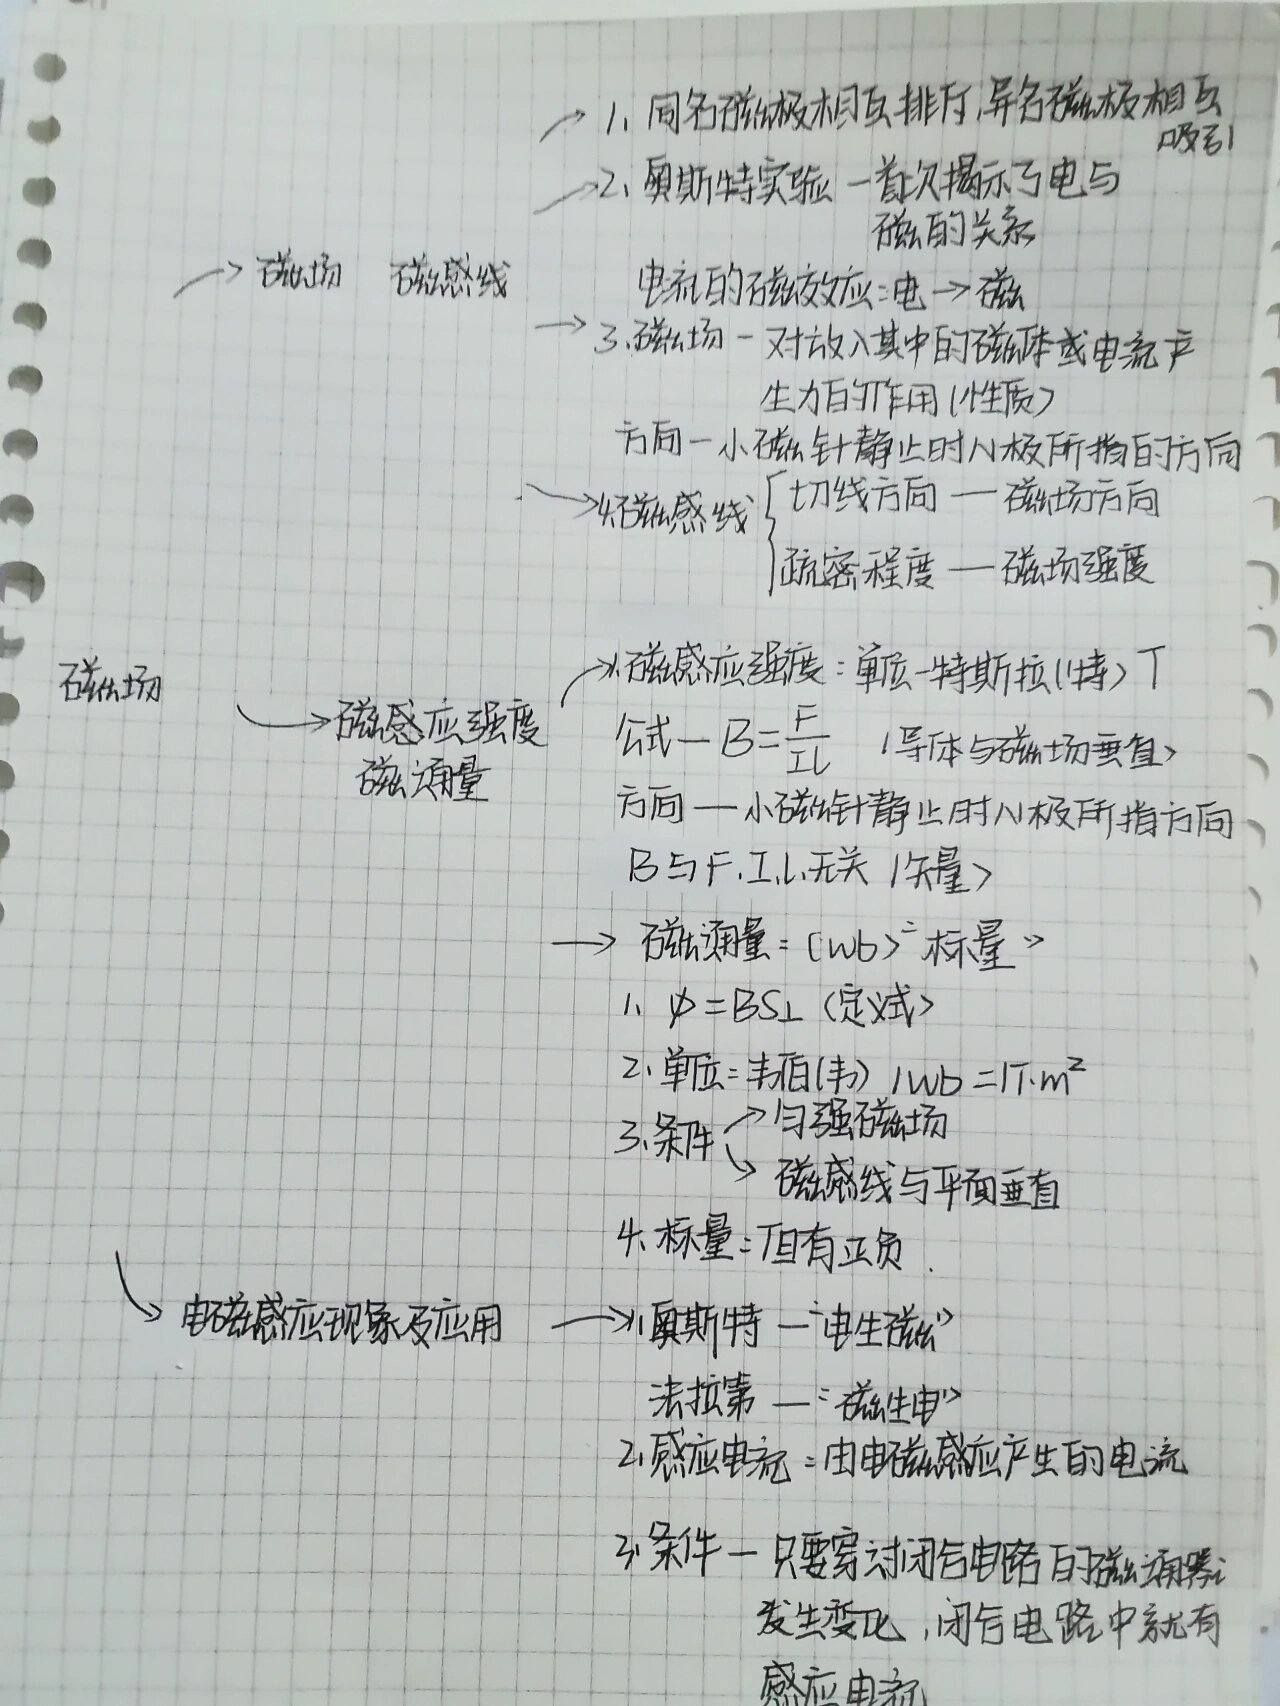 1、同名磁极相互排斥,异名磁极相互
吸引
2、奥斯特实验—首次揭示了电与
磁的关系
磁场 磁感线
电流的磁效应:电→磁
3、磁场－对放入其中的磁体或电流产
生力的作用(性质)
方向—小磁针静止时N极所指的方向
4、磁感线
切线方向 — 磁场方向
疏密程度 — 磁场强度
磁场
磁感应强度
磁通量
1、磁感应强度:单位—特斯拉(特) T
公式— B=F/IL (导体与磁场垂直)
方向—小磁针静止时N极所指方向
B与F、I、L无关 (矢量)
磁通量:(wb) "标量"
1、φ=BS⊥ (定义式)
2、单位:韦伯(韦) 1wb=1T·m²
3、条件
匀强磁场
磁感线与平面垂直
4、标量:但有正负.
电磁感应现象及应用
1、奥斯特 — "电生磁"
法拉第 — "磁生电"
2、感应电流:由电磁感应产生的电流
3、条件—只要穿过闭合电路的磁通量
发生变化,闭合电路中就有
感应电流